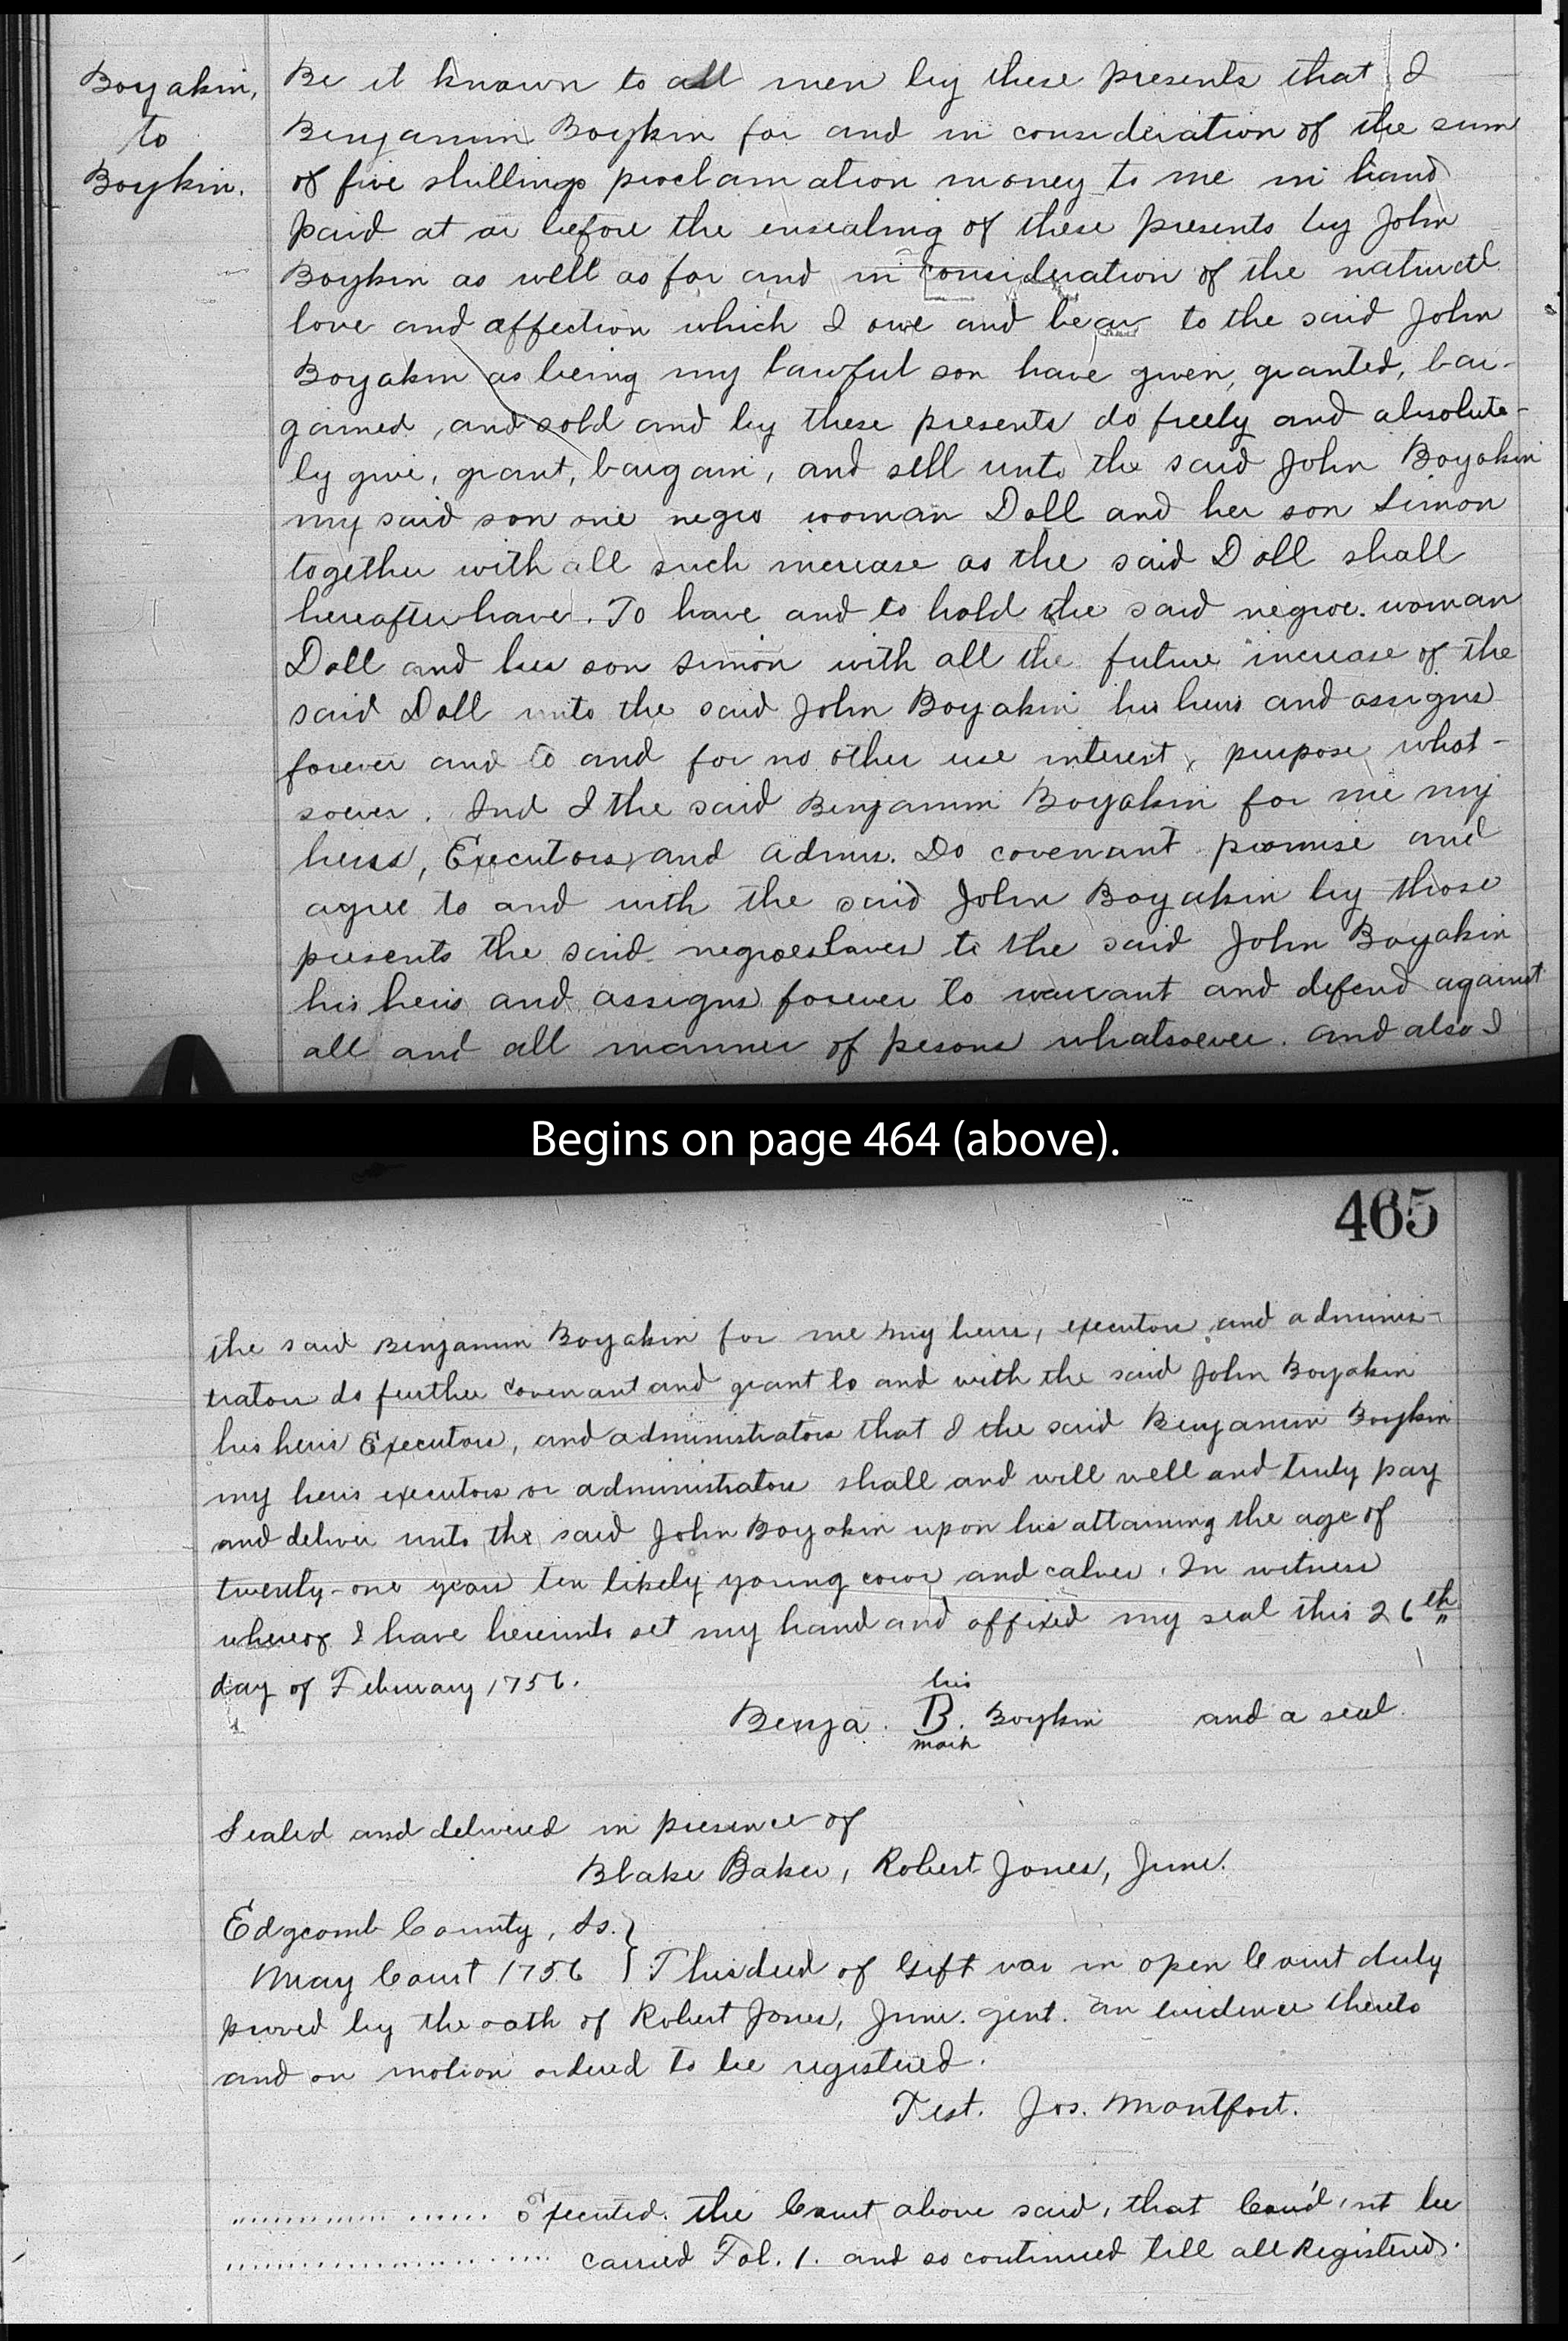 Boyakin,
to
Boykin.
Be it known to all men by these presents that I
Benjamin Boykin for and in consideration of the sum
of five shillings proclamation money to me in hand
paid at or before the ensealing of these presents by John
Boykin as well as for and in consideration of the naturall
love and affection which I owe and bear to the said John
Boyakin as being my lawful son have given, granted, bar-
gained, and sold and by these presents do freely and absolute-
ly give, grant, bargain, and sell unto the said John Boyakin
my said son one negro woman Doll and her son Simon
together with all such increase as the said Doll shall
hereafter have. To have and to hold the said negroe woman
Doll and her son Simon with all the future increase of the
said Doll unto the said John Boyakin his heirs and assigns
forever and to and for no other use interest, purpose what-
soever. And I the said Benjamin Boyakin for me my
heirs, Executors, and Admrs. Do covenant promise and
agree to and with the said John Boyakin by those
presents the said negroeslaves to the said John Boyakin
his heirs and assigns forever to warrant and defend against
all and all manner of pesons whatsoever. and also I
Begins on page 464 (above).
465
the said Benjamin Boyakin for me my heirs, executors and adminis-
trators do further covenant and grant to and with the said John Boyakin
his heirs Executors, and administrators that I the said Benjamin Boykin
my heirs executors or administrators shall and will well and truly pay
and deliver unto the said John Boyakin upon his attaining the age of
twenty-one years ten likely young cows and calves. In witness
whereof I have hereunto set my hand and affixed my seal this 26th
day of February 1756.
his
Benja. B. Boykin and a seal.
mark
Sealed and delivered in presence of
Blake Baker, Robert Jones, Junr.
Edgcomb County, Ss. }
May Court 1756 } This deed of Gift was in open Court duly
proved by the oath of Robert Jones, Junr. gent. an evidence thereto
and on motion ordered to be registered.
Test. Jos. Montfort.
.................. the Court above said, that Coud'nt be
.................. carried Fol. 1. and so continued till all Registered.